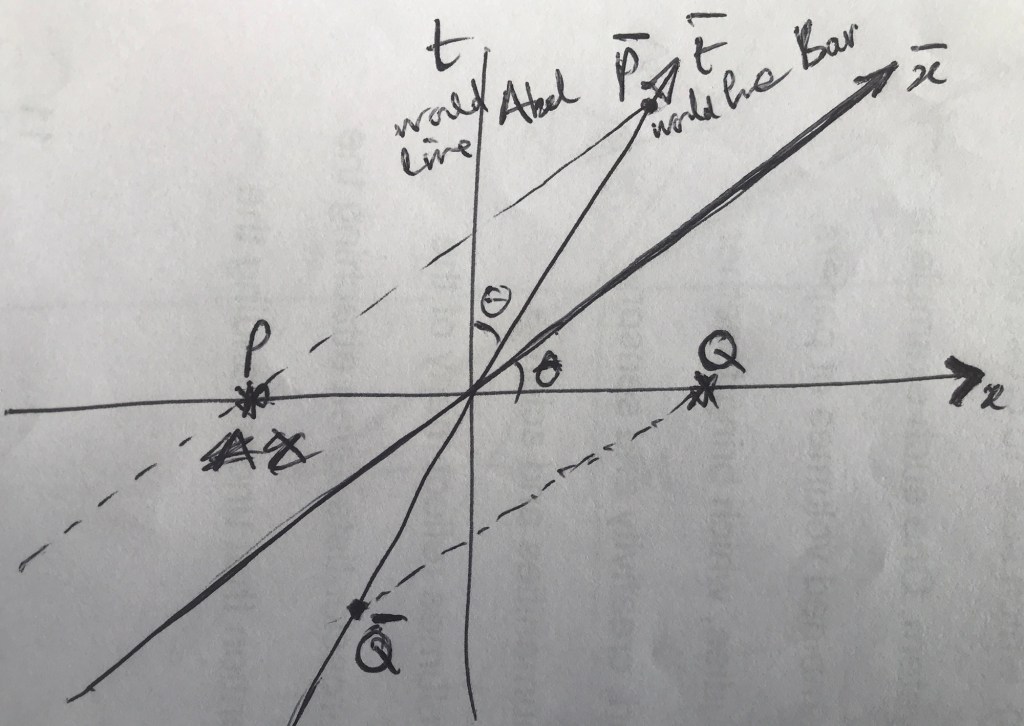 t
world
line
Abel
P̄
t̄
world line Bar
x̄
θ
θ
P
Q
x
Q̄